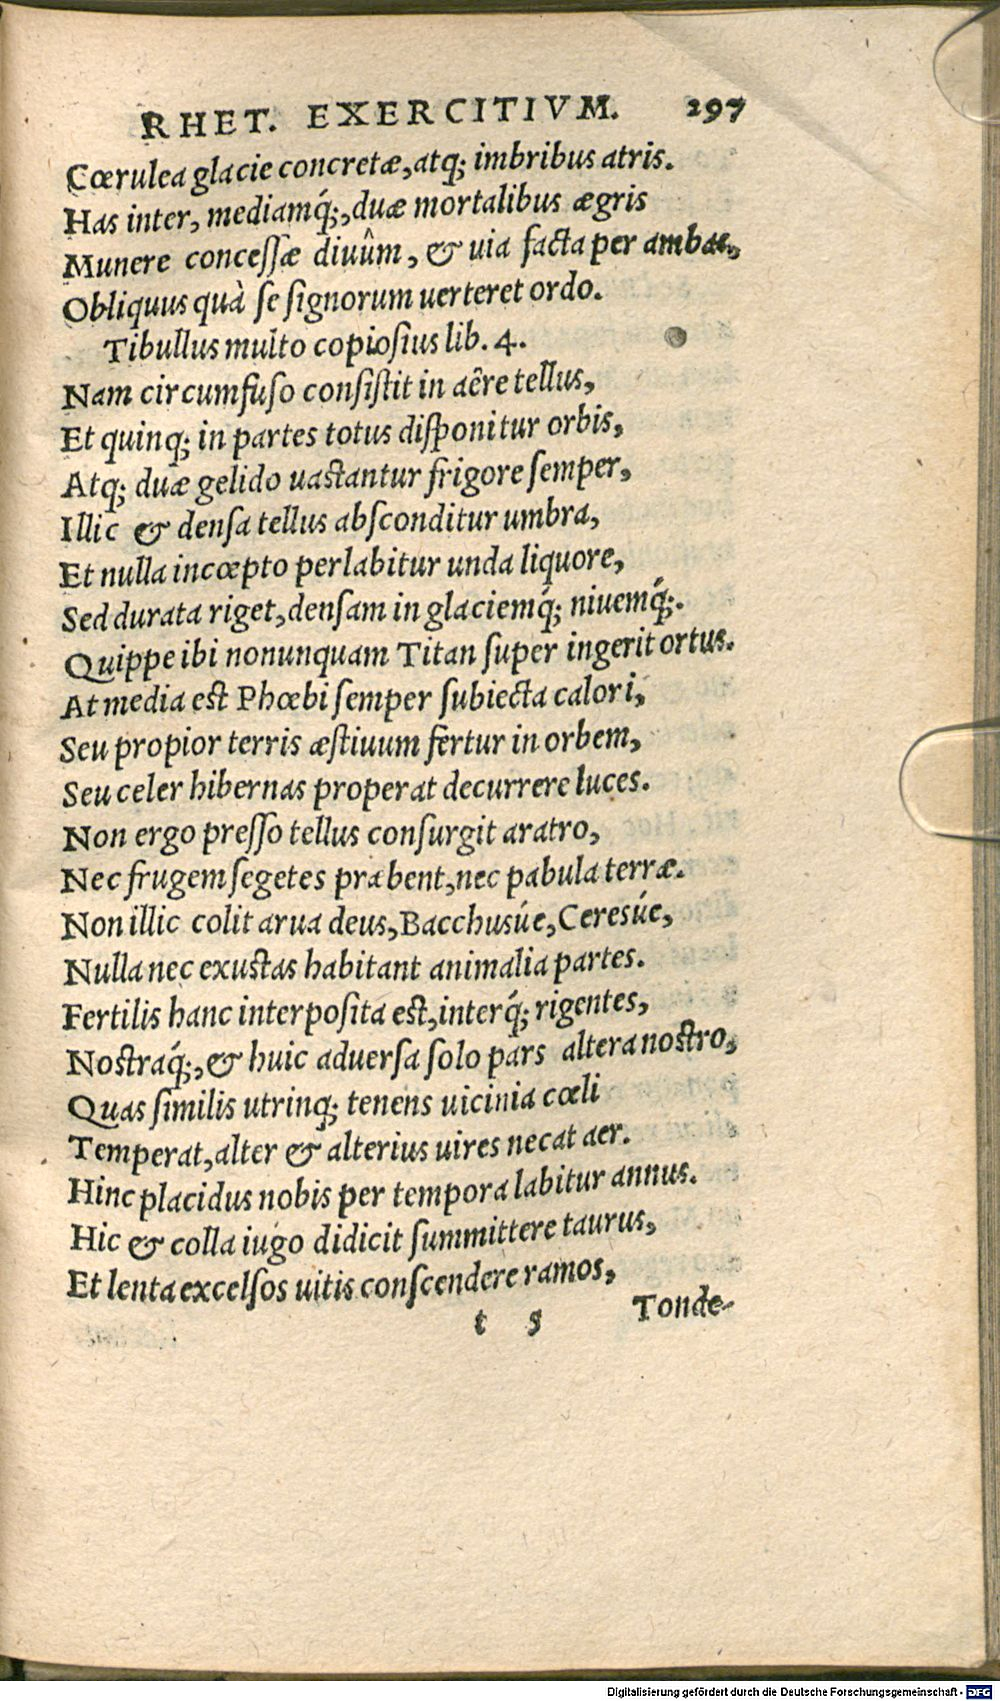 RHET. EXERCITIVM. 297
Cœrulea glacie concretæ, atq; imbribus atris.
Has inter, mediamq́;, duæ mortalibus ægris
Munere concessæ diuûm, & uia facta per ambas,
Obliquus quà se signorum uerteret ordo.
Tibullus multo copiosius lib. 4.
Nam circumfuso consistit in aëre tellus,
Et quinq; in partes totus disponitur orbis,
Atq; duæ gelido uastantur frigore semper,
Illic & densa tellus absconditur umbra,
Et nulla incœpto perlabitur unda liquore,
Sed durata riget, densam in glaciemq́; niuemq́;.
Quippe ibi nonunquam Titan super ingerit ortus.
At media est Phœbi semper subiecta calori,
Seu propior terris æstiuum fertur in orbem,
Seu celer hibernas properat decurrere luces.
Non ergo presso tellus consurgit aratro,
Nec frugem segetes præbent, nec pabula terræ.
Non illic colit arua deus, Bacchusúe, Ceresúe,
Nulla nec exustas habitant animalia partes.
Fertilis hanc interposita est, interq́; rigentes,
Nostraq́;, & huic aduersa solo pars altera nostro,
Quas similis utrinq; tenens uicinia cœli
Temperat, alter & alterius uires necat aer.
Hinc placidus nobis per tempora labitur annus.
Hic & colla iugo didicit summittere taurus,
Et lenta excelsos uitis conscendere ramos,
t 5 Tonde-
Digitalisierung gefördert durch die Deutsche Forschungsgemeinschaft - DFG